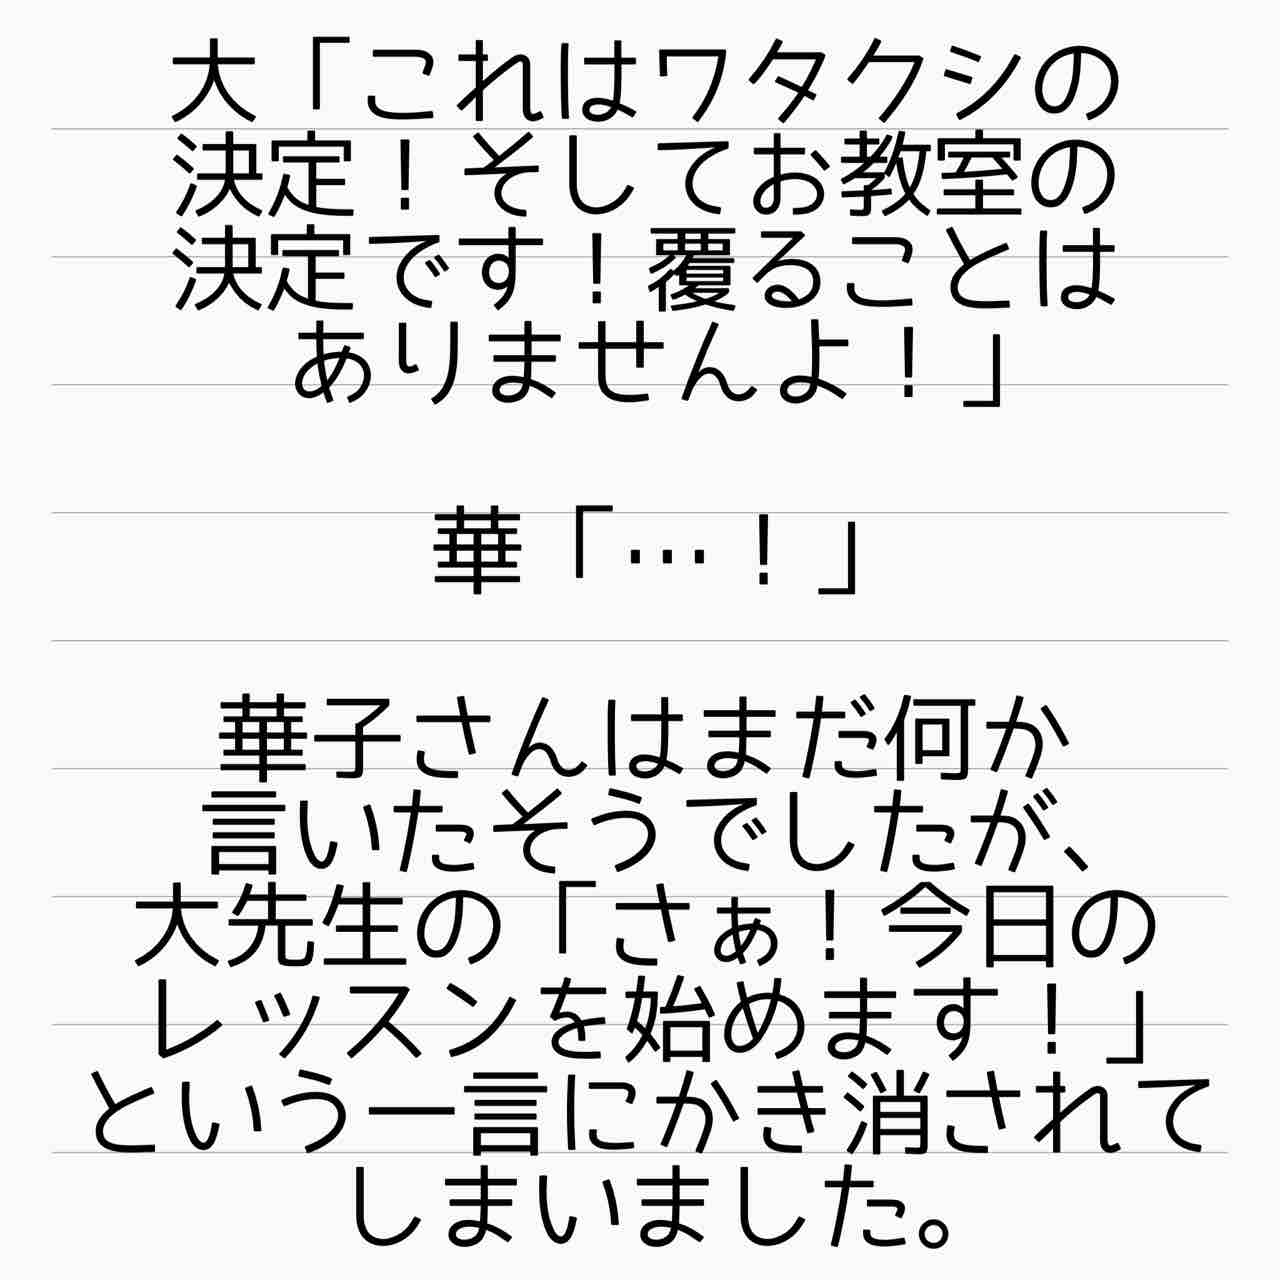 大「これはワタクシの
決定！そしてお教室の
決定です！覆ることは
ありませんよ！」
華「…！」
華子さんはまだ何か
言いたそうでしたが、
大先生の「さぁ！今日の
レッスンを始めます！」
という一言にかき消されて
しまいました。